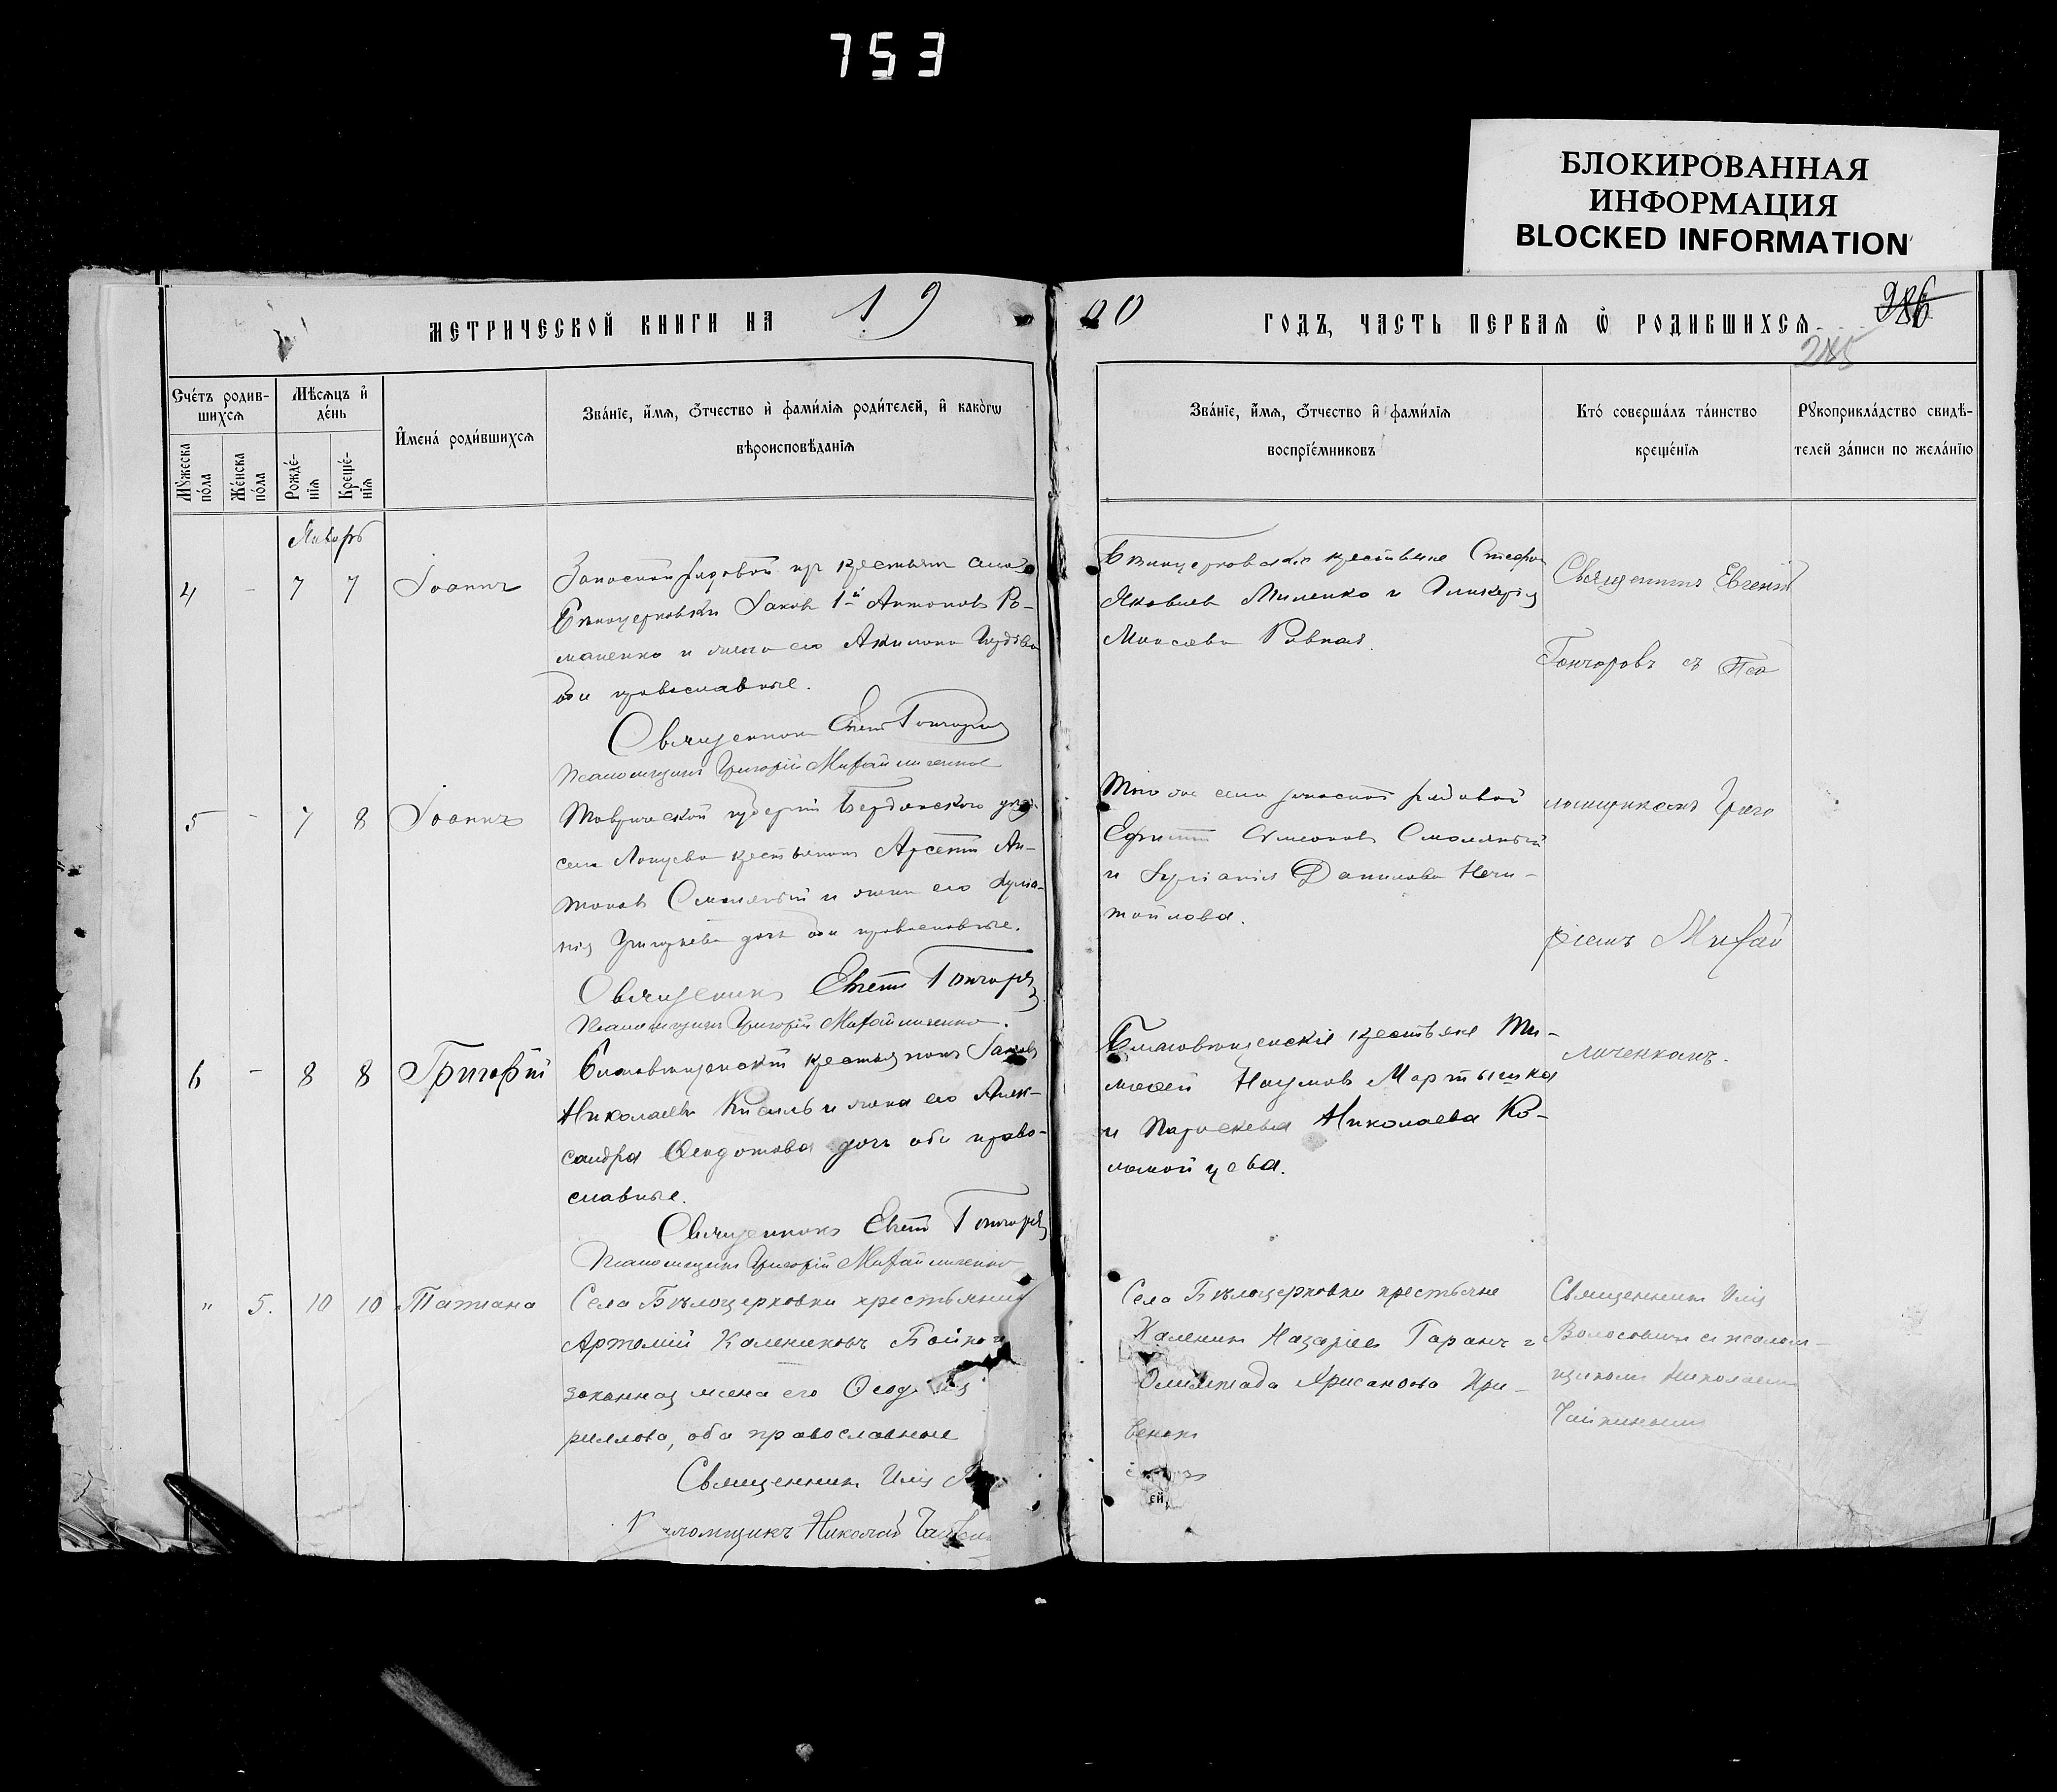 753
БЛОКИРОВАННАЯ
ИНФОРМАЦИЯ
BLOCKED INFORMATION
МЕТРИЧЕСКОЙ КНИГИ НА 19
00 ГОДЪ, ЧАСТЬ ПЕРВАЯ Ѿ РОДИВШИХСЯ
286
285
Счетъ родив-
шихся
Мѣсяцъ и
день
Мужеска
пола
Женска
пола
Рожде-
нія
Креще-
нія
Имена родившихся
Званіе, имя, отчество и фамилія родителей, и какогѡ
вѣроисповѣданія
Званіе, имя, отчество и фамилія
воспріемниковъ
Кто совершалъ таинство
крещенія
Рукоприкладство свидѣ-
телей записи по желанію
Январь
4 - 7 7 Іоаннъ
Запасной рядовой изъ крестьянъ села
Бѣлоцерковки Іаковъ 1й Антоновъ Ро-
маненко и жена его Акилина
оба православные.
Священникъ Евгеній Гончаровъ
Псаломщикъ Григорій Михайличенко
Бѣлоцерковскіе крестьяне Стефанъ
Яковлевъ Миленко и Гликерія
Моисеева Ровная.
Священникъ Евгеній
Гончаровъ съ Пса
5 - 7 8 Іоаннъ
Таврической губерніи Бердянского уѣзда
села крестьянинъ Арсеній Ан-
тоновъ Смоляный и жена его Іуліа-
нія Григорьева дочь оба православные.
Священникъ Евгеній Гончаровъ
Псаломщикъ Григорій Михайличенко.
Того же села запасной рядовой
Ефимій Симеоновъ Смоляный
и Іуліанія Данилова Нечи-
тайлова.
ломщикомъ Григо
ріемъ Михай
6 - 8 8 Григорій
Благовѣщенскій крестьянинъ Іаковъ
Николаевъ Кисиль и жена его Алек-
сандра Ѳеодотова дочь оба право-
славные.
Священникъ Евгеній Гончаровъ
Псаломщикъ Григорій Михайличенко
Благовѣщенскіе крестьяне Ти-
моѳей Наумовъ Мартышка
и Параскева Николаева Ко-
ломойцева.
личенкомъ.
" 5. 10 10 Татіана
Села Бѣлоцерковки крестьянинъ
Артемій Калениковъ Бойко и
законная жена его
риллова, оба православные
Священникъ Илія
Псаломщикъ Николай
Села Бѣлоцерковки крестьяне
Каленикъ Назаріевъ Гаранъ и
Олимпіада Крисанова Кри-
Священникъ Илія
Волосовичъ съ псалом-
щикомъ Николаемъ